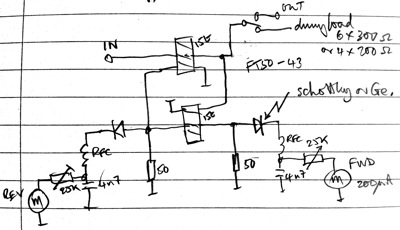 OUT
dummy load
6 x 300 Ω
or 4 x 200 Ω
IN
15t
FT50-43
schottky or Ge.
15t
RFC
RFC
25K
FWD
50
50
REV
25K
4n7
4n7
M
M
200μA